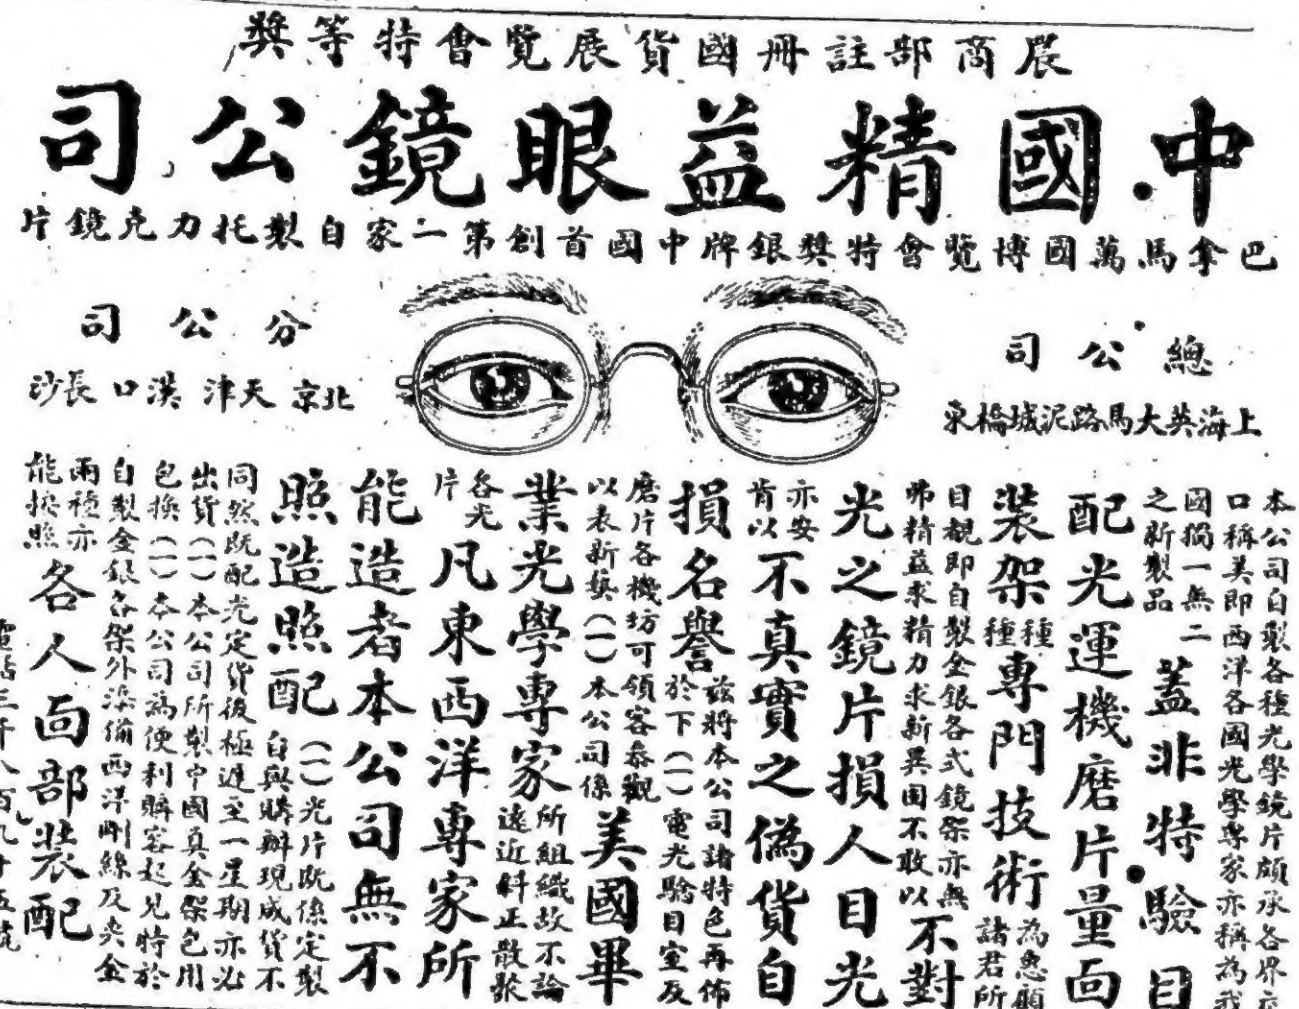 農商部註冊國貨展覽會特等獎
中國精益眼鏡公司
巴拿馬萬國博覽會特獎銀牌中國首創第一家自製托力克鏡片
總公司
上海英大馬路泥城橋東
分公司
北京 天津 漢口 長沙
本公司自製各種光學鏡片頗承各界
口稱美即西洋各國光學專家亦稱為我
國獨一無二
之新製品
蓋非特驗目
配光運機磨片量面
裝架種種專門技術為惠顧
諸君所
目覩即自製金銀各式鏡架亦無
弗精益求精力求新異固不敢以
不對
光之鏡片損人目光
亦安
肯以
不真實之偽貨自
損名譽茲將本公司諸特色再佈
於下(一)電光驗目室及
磨片各機坊可領客參觀
以表新藝(一)本公司係
美國畢
業光學專家所組織故不論
遠近斜正散
各光
片
凡東西洋專家所
能造者本公司無不
照造照配(一)光片既係定製
自與購辦現成貨不
同然既配光定貨後極遲至一星期亦必
出貨(一)本公司所製中國真金架包用
包換(一)本公司為便利購客起見特於
自製金銀各架外添備西洋剛絲及夾金
兩種亦
能按照
各人面部裝配
電話三千八百九十五號